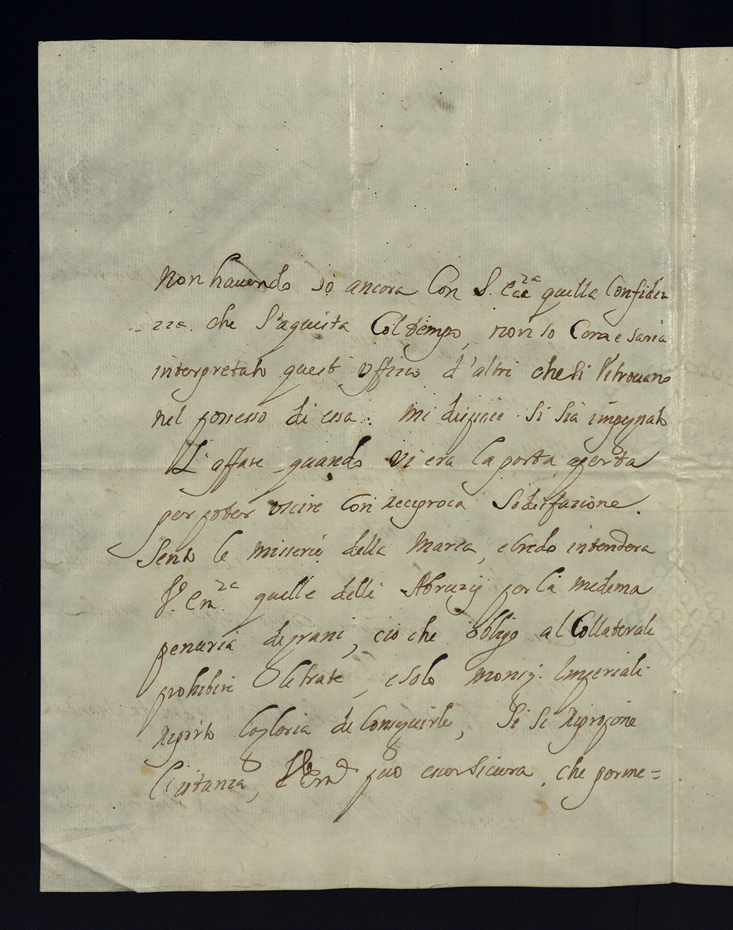 Non havendo io ancora Con S. Ecc.za quella Confiden
=zza che s'aquista Col tempo, non so Com'e saria
interpretato quest' Uffitio d'altri che si ritrovano
nel possesso di essa. Mi dispiace si sia impegnato
L'affare quando vi era la porta aperta
per poter uscire Con reciproca Sodisfazione.
Sento le misserie della Marca, e Credo intenderà
V. Em.za quelle delli Abruzij per la medema
penuria de grani, ciò che obligò al Collaterale
prohibire le trate, e solo Monsig. Imperiali
riportò la gloria di Conseguirle, Se si
può esser sicura, che per me=